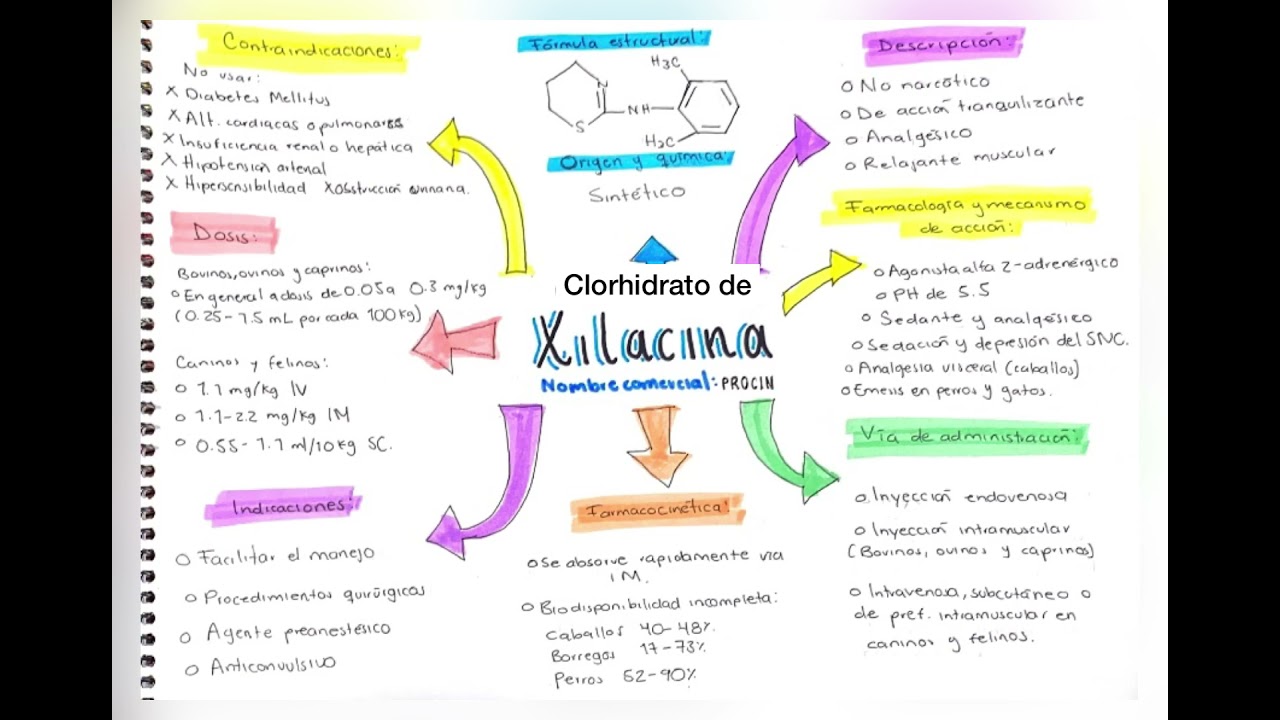 Contraindicaciones:
No usar:
X Diabetes Mellitus
X Alt. cardiacas o pulmonares
X Insuficiencia renal o hepática
X Hipotensión arterial
X Hipersensibilidad X Obstrucción urinaria.
Dosis:
Bovinos, ovinos y caprinos:
o En general a dosis de 0.05 a 0.3 mg/kg
(0.25-1.5 mL por cada 100 kg)
Caninos y felinos:
o 1.1 mg/kg IV
o 1.1-2.2 mg/kg IM
o 0.55-1.1 ml/10kg SC.
Indicaciones:
o Facilitar el manejo
o Procedimientos quirúrgicos
o Agente preanestésico
o Anticonvulsivo
Fórmula estructural:
H3C
N
NH
S
H3C
Origen y química:
Sintético
Clorhidrato de
Xilacina
Nombre comercial: PROCIN
Farmacocinética:
o Se absorve rapidamente via
IM.
o Biodisponibilidad incompleta:
Caballos 40-48%.
Borregos 17-73%
Perros 52-90%
Descripción:
o No narcótico
o De acción tranquilizante
o Analgésico
o Relajante muscular
Farmacología y mecanismo
de acción:
o Agonista alfa 2-adrenérgico
o PH de 5.5
o Sedante y analgésico
o Sedación y depresión del SNC.
o Analgesia visceral (caballos)
o Emesis en perros y gatos.
Vía de administración:
o Inyección endovenosa
o Inyección intramuscular
(Bovinos, ovinos y caprinos)
o Intravenosa, subcutáneo o
de pref. intramuscular en
caninos y felinos.